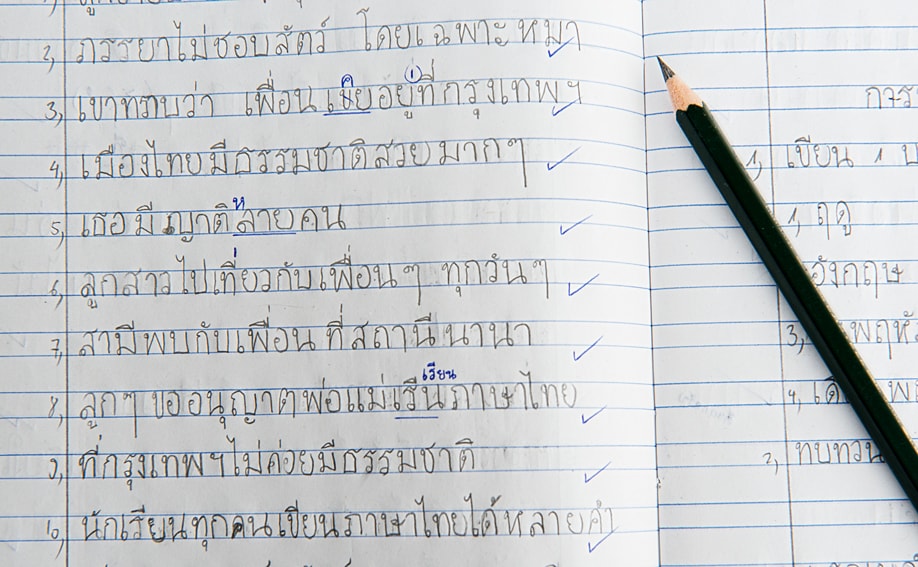 2, ภรรยาไม่ชอบสัตว์ โดยเฉพาะหมา
3, เขาทราบว่า เพื่อนเมียอยู่ที่กรุงเทพฯ
ค 1
4, เมืองไทยมีธรรมชาติสวยมากๆ
5, เธอมีญาติลายคน
ห
6, ลูกสาวไปเที่ยวกับเพื่อนๆ ทุกวันๆ
7, สามีพบกับเพื่อนที่สถานีนานา
8, ลูกๆ ขออนุญาตพ่อแม่เรีนภาษาไทย
เรียน
9, ที่กรุงเทพฯไม่ค่อยมีธรรมชาติ
10, นักเรียนทุกคนเขียนภาษาไทยได้หลายคำ
1, เขียน 1
1, ฤดู
อังกฤษ
3, พฤหั
4,
2, ทบทวน